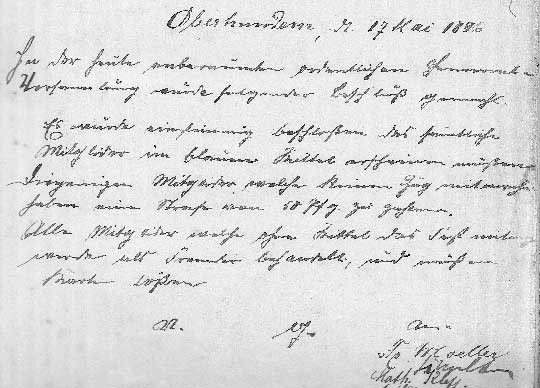 Oberhundem, d. 17 Mai 1886
In der heute anberaumten ordentlichen General-
Versammlung würde folgender Beschluß gemacht.
Es würde einstimmig beschloßen das samtliche
Mitglider im blauen Kittel erscheinen müßen
Diejenigen Mitglieder welche keinen Zug mitmachen
haben eine Strafe von 50 Pfg. zu zahlen.
Alle Mitglider welche ohne Kittel das Fest
werde als Fremder behandelt, und müßen
Karte lößen
V. G. U.
Moeller